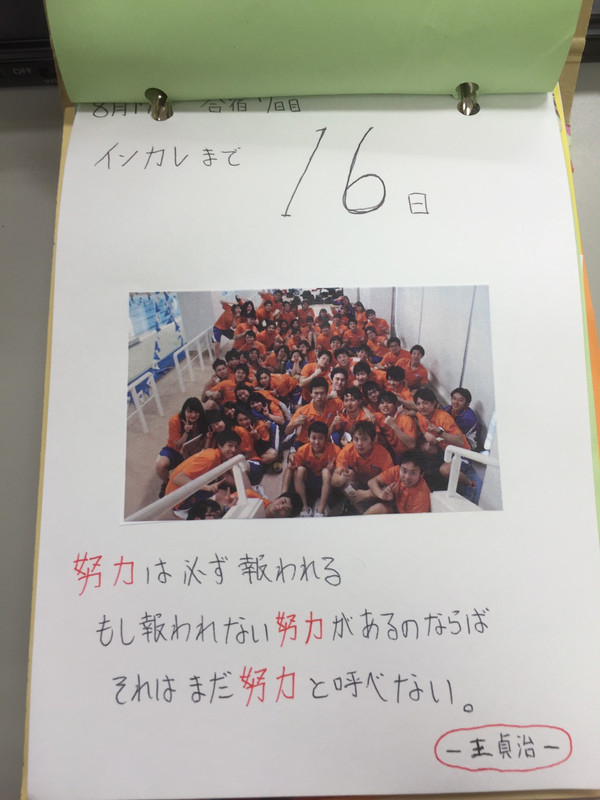 合宿
インカレまで 16日
努力は必ず報われる
もし報われない努力があるのならば
それはまだ努力と呼べない。
ー王貞治ー